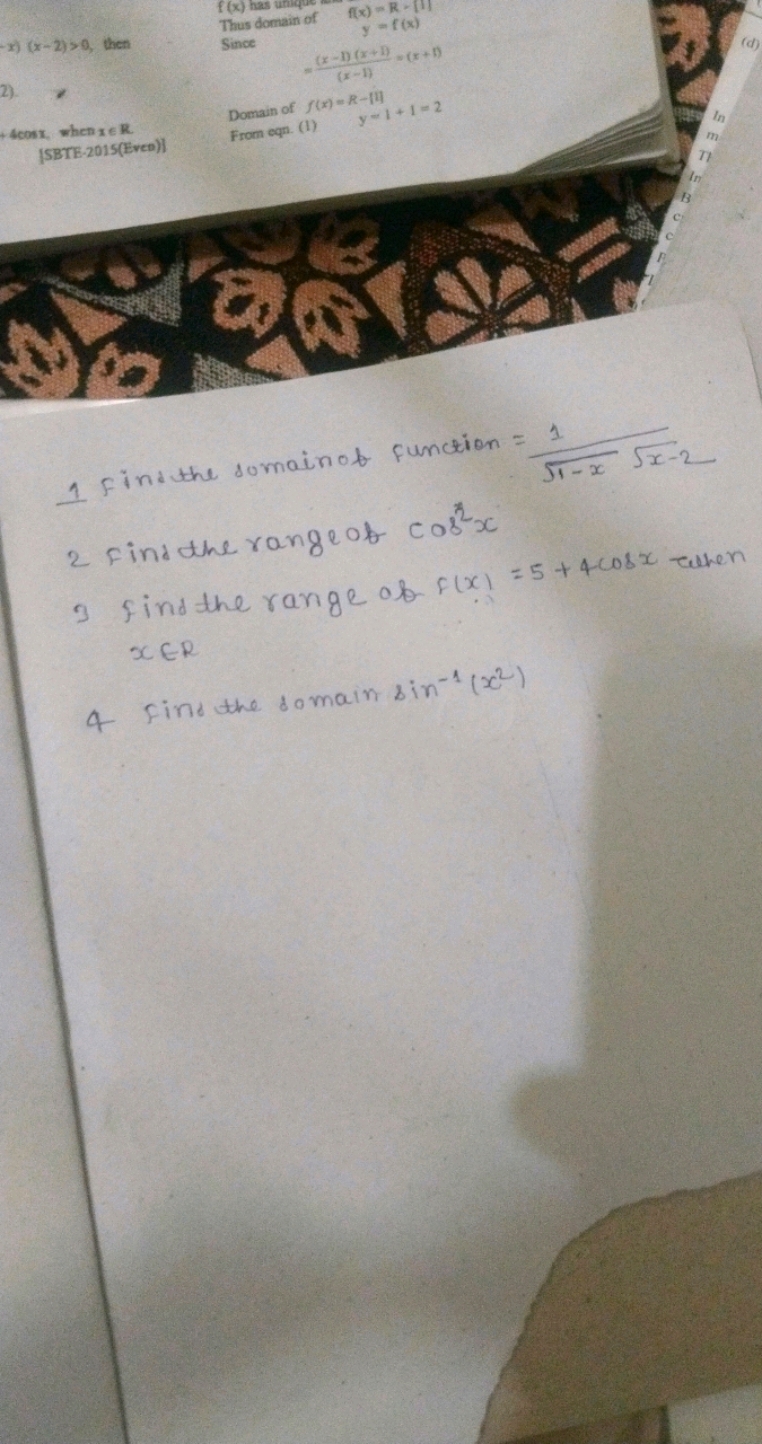 -x) (x-2)>0, then
2).
+4cosx, when x ∈ R.
[SBTE-2015(Even)]
f(x) has unique
Thus domain of f(x) = R - [1]
Since y = f(x)
= (x-1)(x+1)/(x-1) = (x+1)
Domain of f(x) = R-[1]
From eqn. (1) y = 1 + 1 = 2
(d)
In
m
Th
In
B
c
c
1 Find the domain of function = 1/(√1-x √x-2)
2 Find the range of cos²x
3 find the range of f(x) = 5+4cosx when
x∈R
4 Find the domain sin⁻¹(x²)